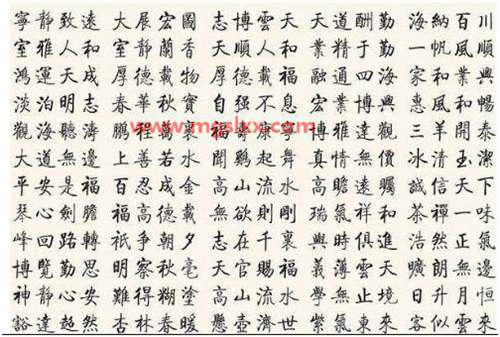 寧靜致遠 大展宏圖 志博雲天 天道酬勤 海納百川
室雅人和 室靜蘭香 天順人和 業精于勤 一帆風順
鴻運天成 厚德載物 厚德載福 融通四海 家和業興
淡泊明志 春華秋實 自强不息 宏業博興 惠風和暢
觀海聽濤 鵬程萬裏 福壽康寧 博雅達觀 三羊開泰
大道無邊 上善若水 聞鷄起舞 真情無價 冰清玉潔
平安是福 百忍成金 高山流水 高瞻遠矚 誠信天下
琴心劍膽 福高德載 無欲則剛 瑞氣祥和 茶禪一味
峰回路轉 祇争朝夕 志在千裏 與時俱進 浩然正氣
博覽勤思 明察秋毫 天官賜福 義薄雲天 曠朗無邊
神靜心安 難得糊塗 高山流水 學無止境 日升月恒
豁達超然 杏林春暖 懸壺濟世 紫氣東來 客似雲來